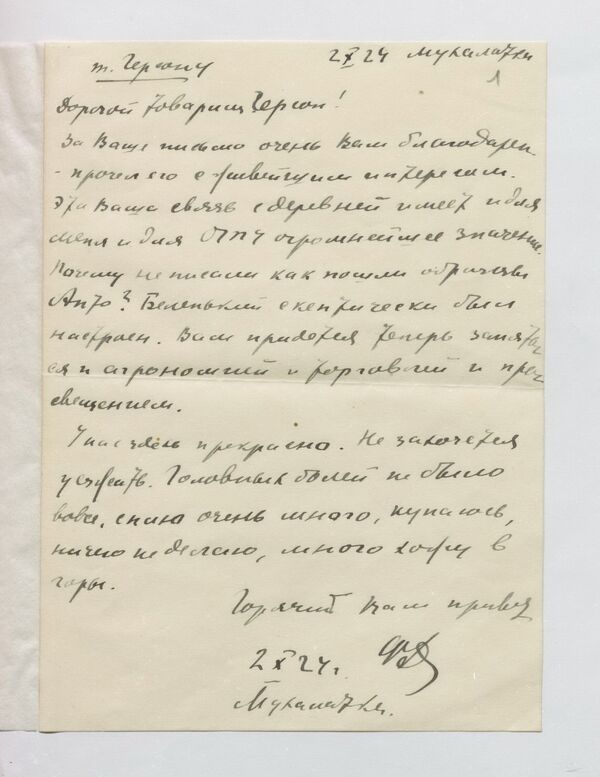 т. Герсону
2 X 24 Мухалатка
1
Дорогой товарищ Герсон!
За Ваше письмо очень Вам благодарен
- прочел его с живейшим интересом.
Эта Ваша связь с деревней имеет и для
меня и для ОГПУ огромнейшее значение.
Почему не писали как пошли
Беленький скептически был
настроен. Вам придется теперь занять
ся и агрономией и торговлей и прос
вещением.
У нас здесь прекрасно. Не захочется
уезжать. Головных болей не было
вовсе, сплю очень много, купаюсь,
ничего не делаю, много хожу в
горы.
Горячий Вам привет
2 X 24 г. ФД
Мухалатка.